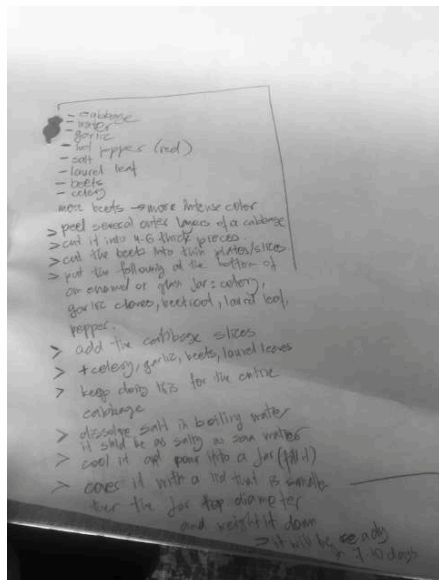 - cabbage
- water
- garlic
- hot pepper (red)
- salt
- laurel leaf
- beets
- celery
more beets → more intense color
> peel several outer layers of a cabbage
> cut it into 4-6 thick pieces
> cut the beets into thin plates/slices
> put the following at the bottom of
an enamel or glass jar: celery,
garlic cloves, beetroot, laurel leaf,
pepper.
> add the cabbage slices
> + celery, garlic, beets, laurel leaves
> keep doing this for the entire
cabbage
> dissolve salt in boiling water
it shld be as salty as water
> cool it and pour into a jar (fill it)
> cover it with a lid that is smaller
the jar top diameter
and weight it down
> it will be ready
7-10 days